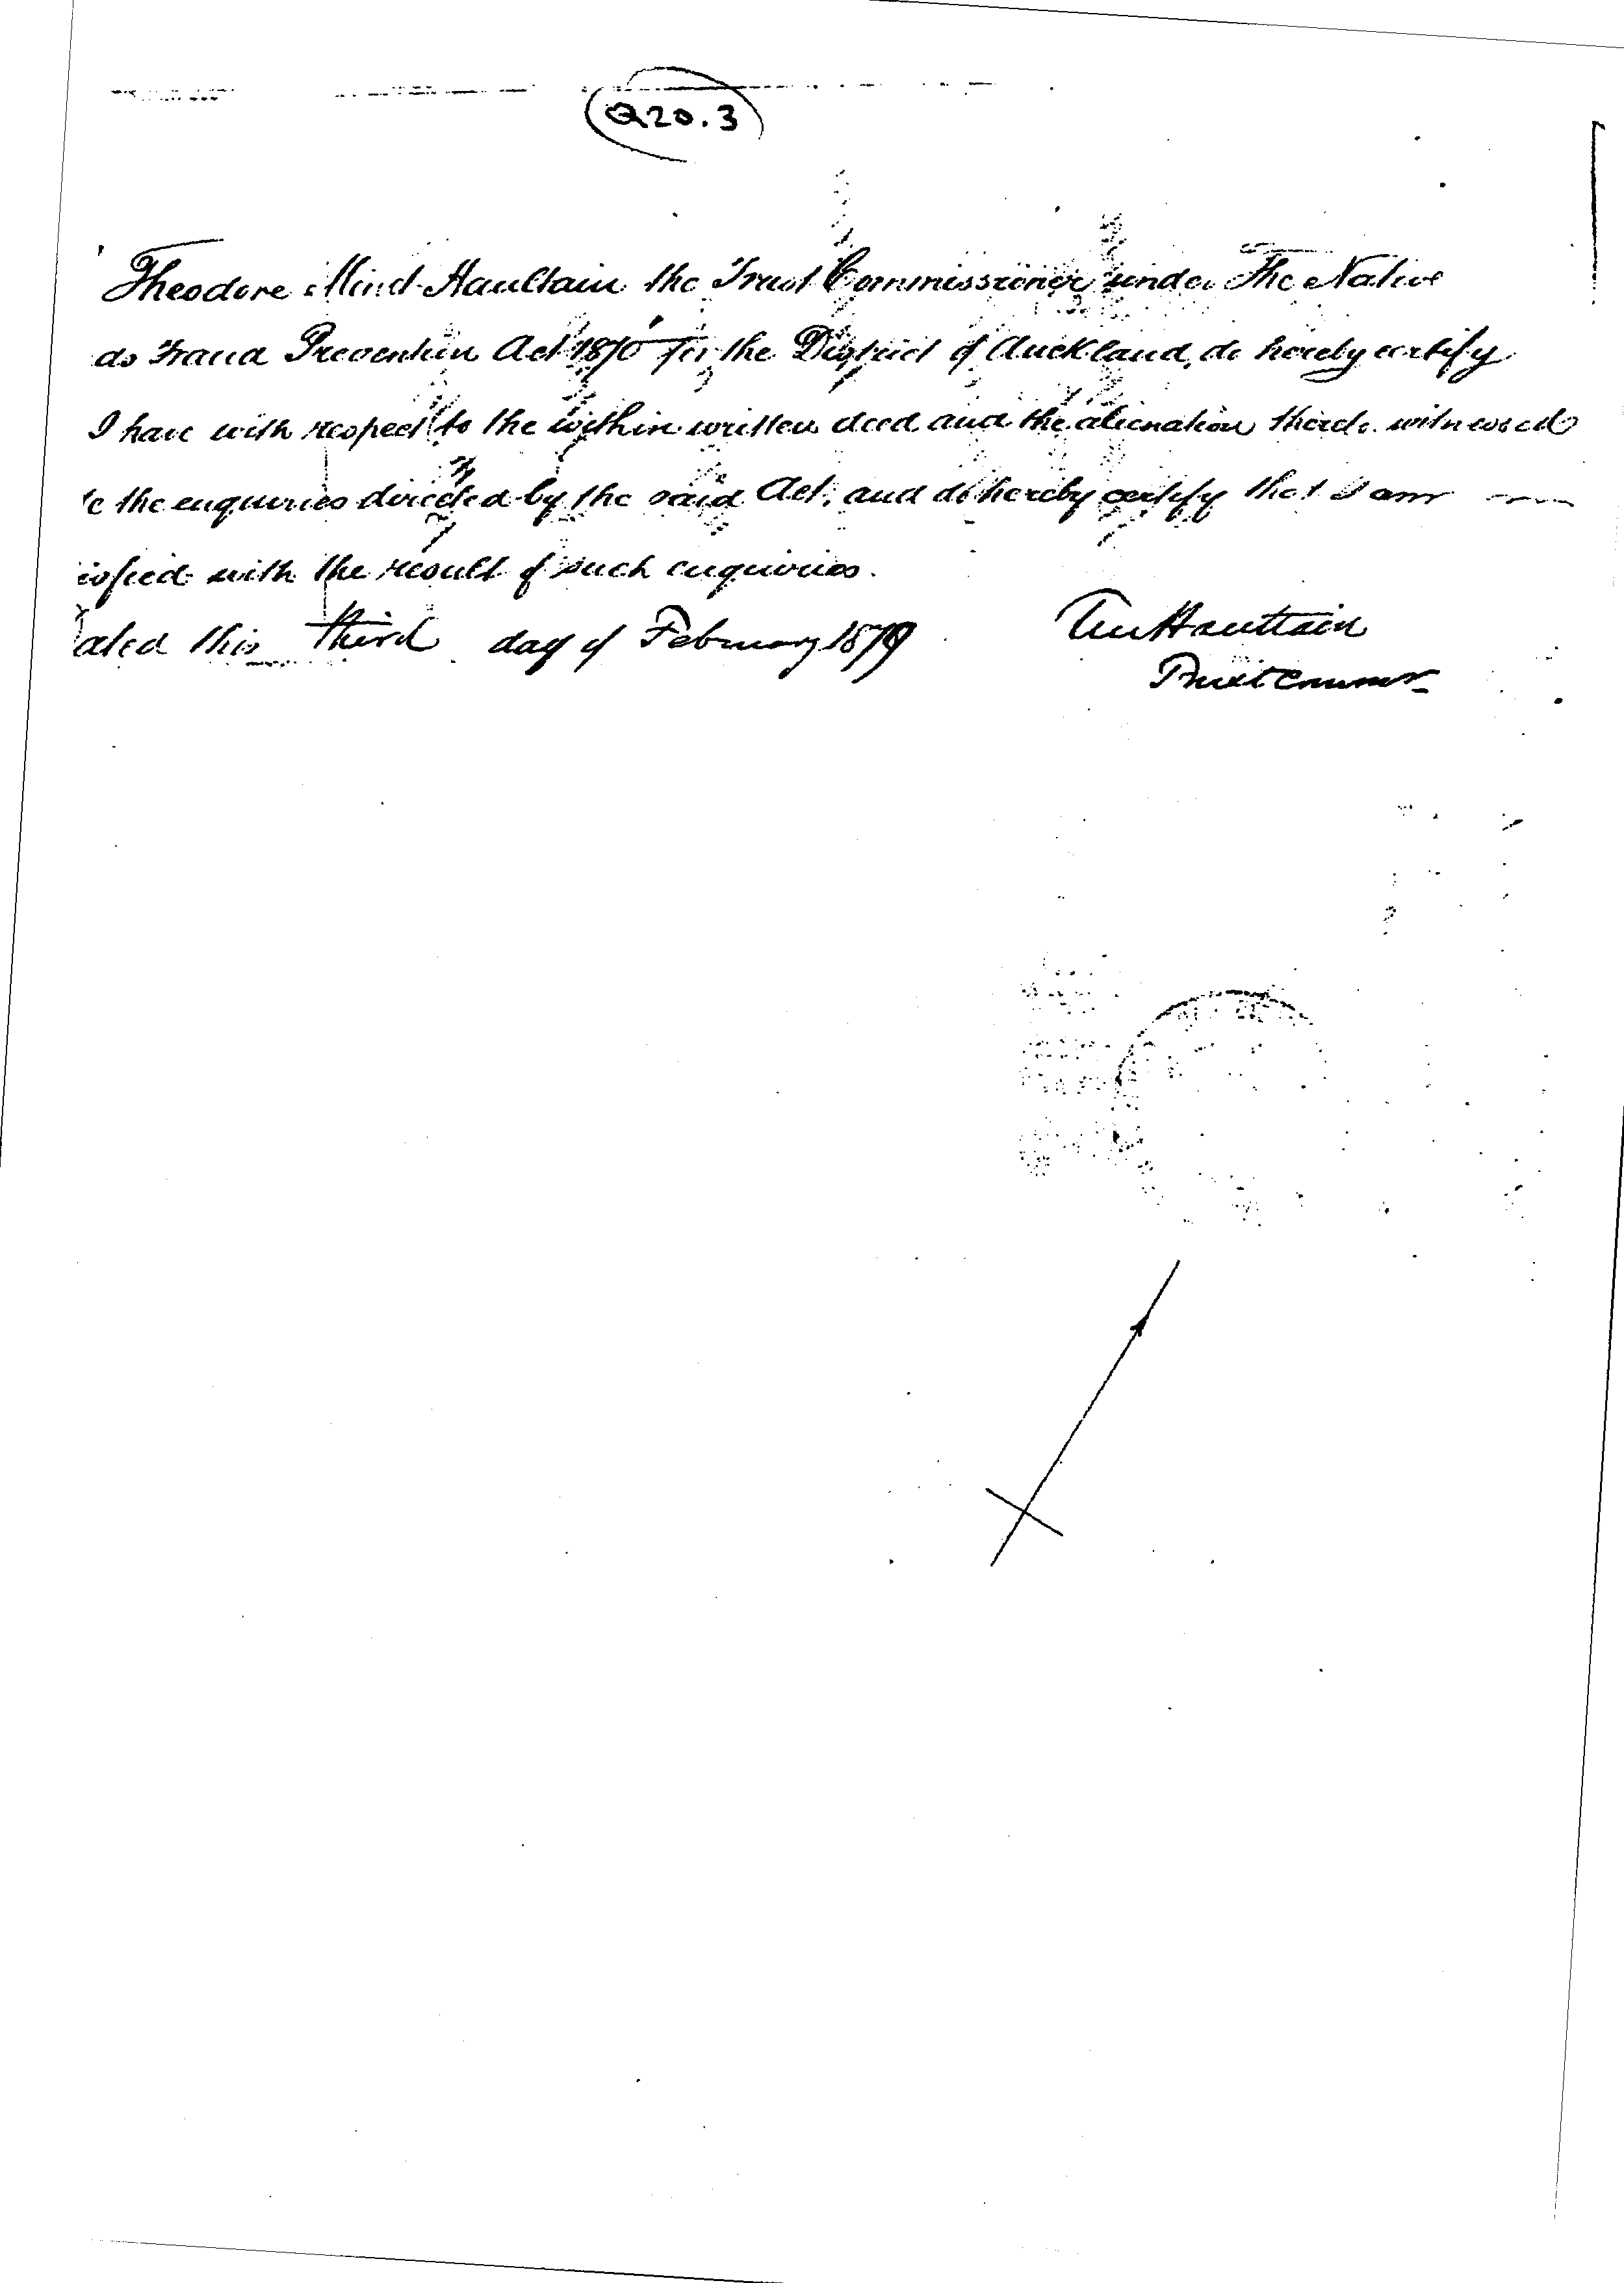 Q20.3
Theodore Minet Haultain the Trust Commissioner under The Native
ds Fraud Prevention Act 1870 for the District of Auckland, do hereby certify
I have with respect to the within written deed and the alienation thereby witnessed
the enquiries directed by the said Act, and do hereby certify that I am
isfied with the result of such enquiries.
ated this third day of February 1879
TM Haultain
Trust Commr